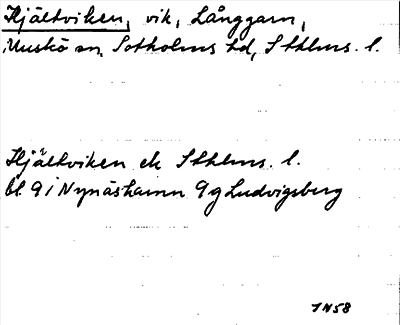 Hjältviken, vik, Långgarn,
Muskö sn, Sotholms hd, Sthlms. l.
Hjältviken ek Sthlms. l.
bl. 9 i Nynäshamn 9g Ludvigsberg
1N58